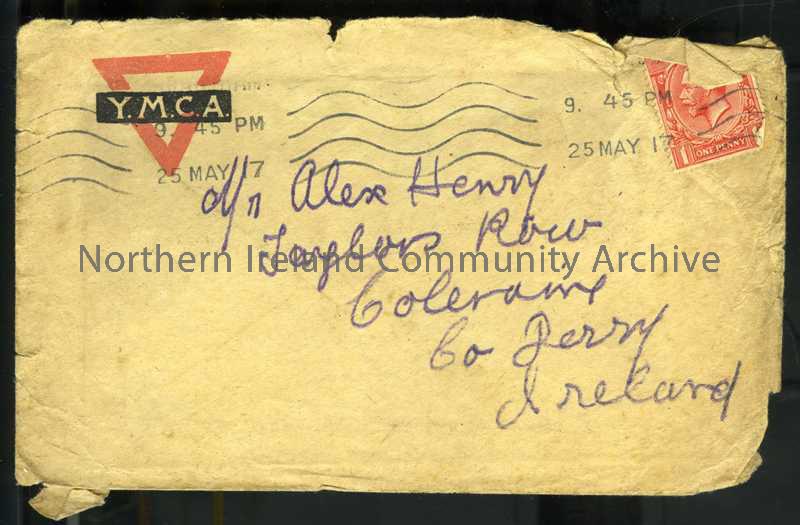 Y.M.C.A
9. 45 PM
25 MAY 17
9. 45 PM
25 MAY 17
1 ONE PENNY
Alex Henry
Taylors Row
Northern Ireland Community Archive
Coleraine
Co Derry
Ireland